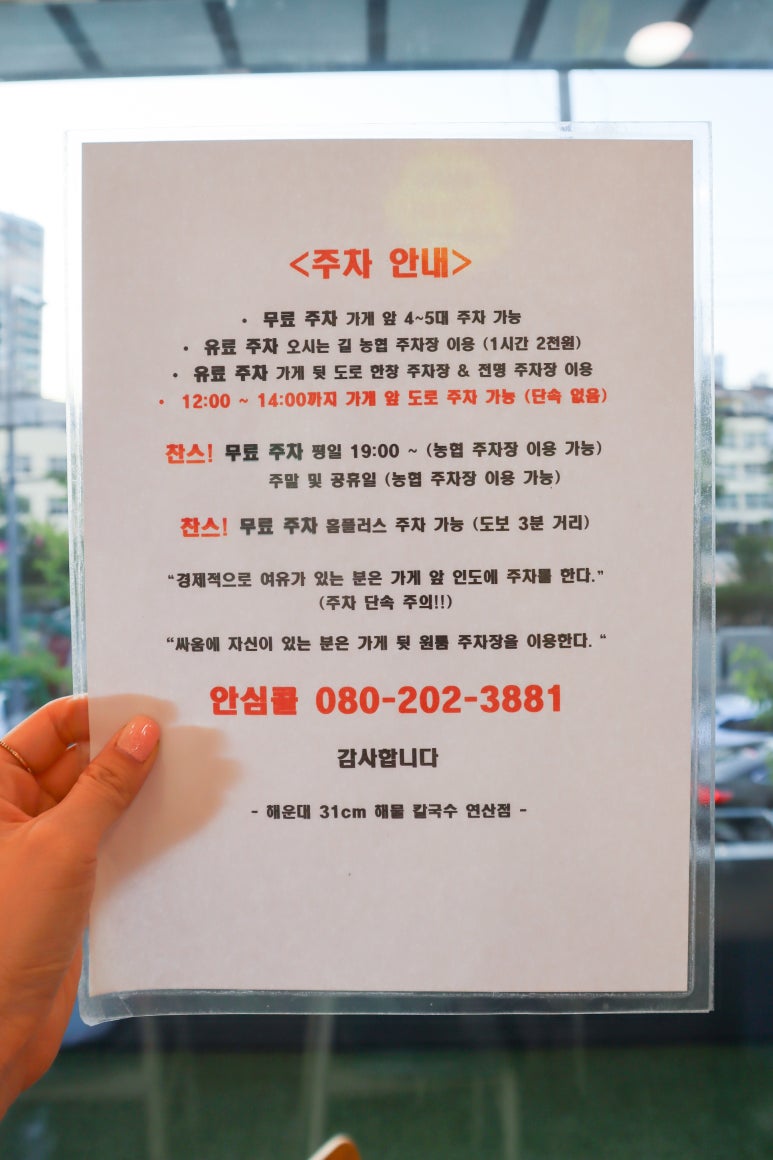 <주차 안내>
• 무료 주차 가게 앞 4~5대 주차 가능
• 유료 주차 오시는 길 농협 주차장 이용 (1시간 2천원)
• 유료 주차 가게 뒷 도로 한장 주차장 & 전명 주차장 이용
• 12:00 ~ 14:00까지 가게 앞 도로 주차 가능 (단속 없음)
찬스! 무료 주차 평일 19:00 ~ (농협 주차장 이용 가능)
주말 및 공휴일 (농협 주차장 이용 가능)
찬스! 무료 주차 홈플러스 주차 가능 (도보 3분 거리)
“경제적으로 여유가 있는 분은 가게 앞 인도에 주차를 한다.”
(주차 단속 주의!!)
“싸움에 자신이 있는 분은 가게 뒷 원룸 주차장을 이용한다. “
안심콜 080-202-3881
감사합니다
- 해운대 31cm 해물 칼국수 연산점 -